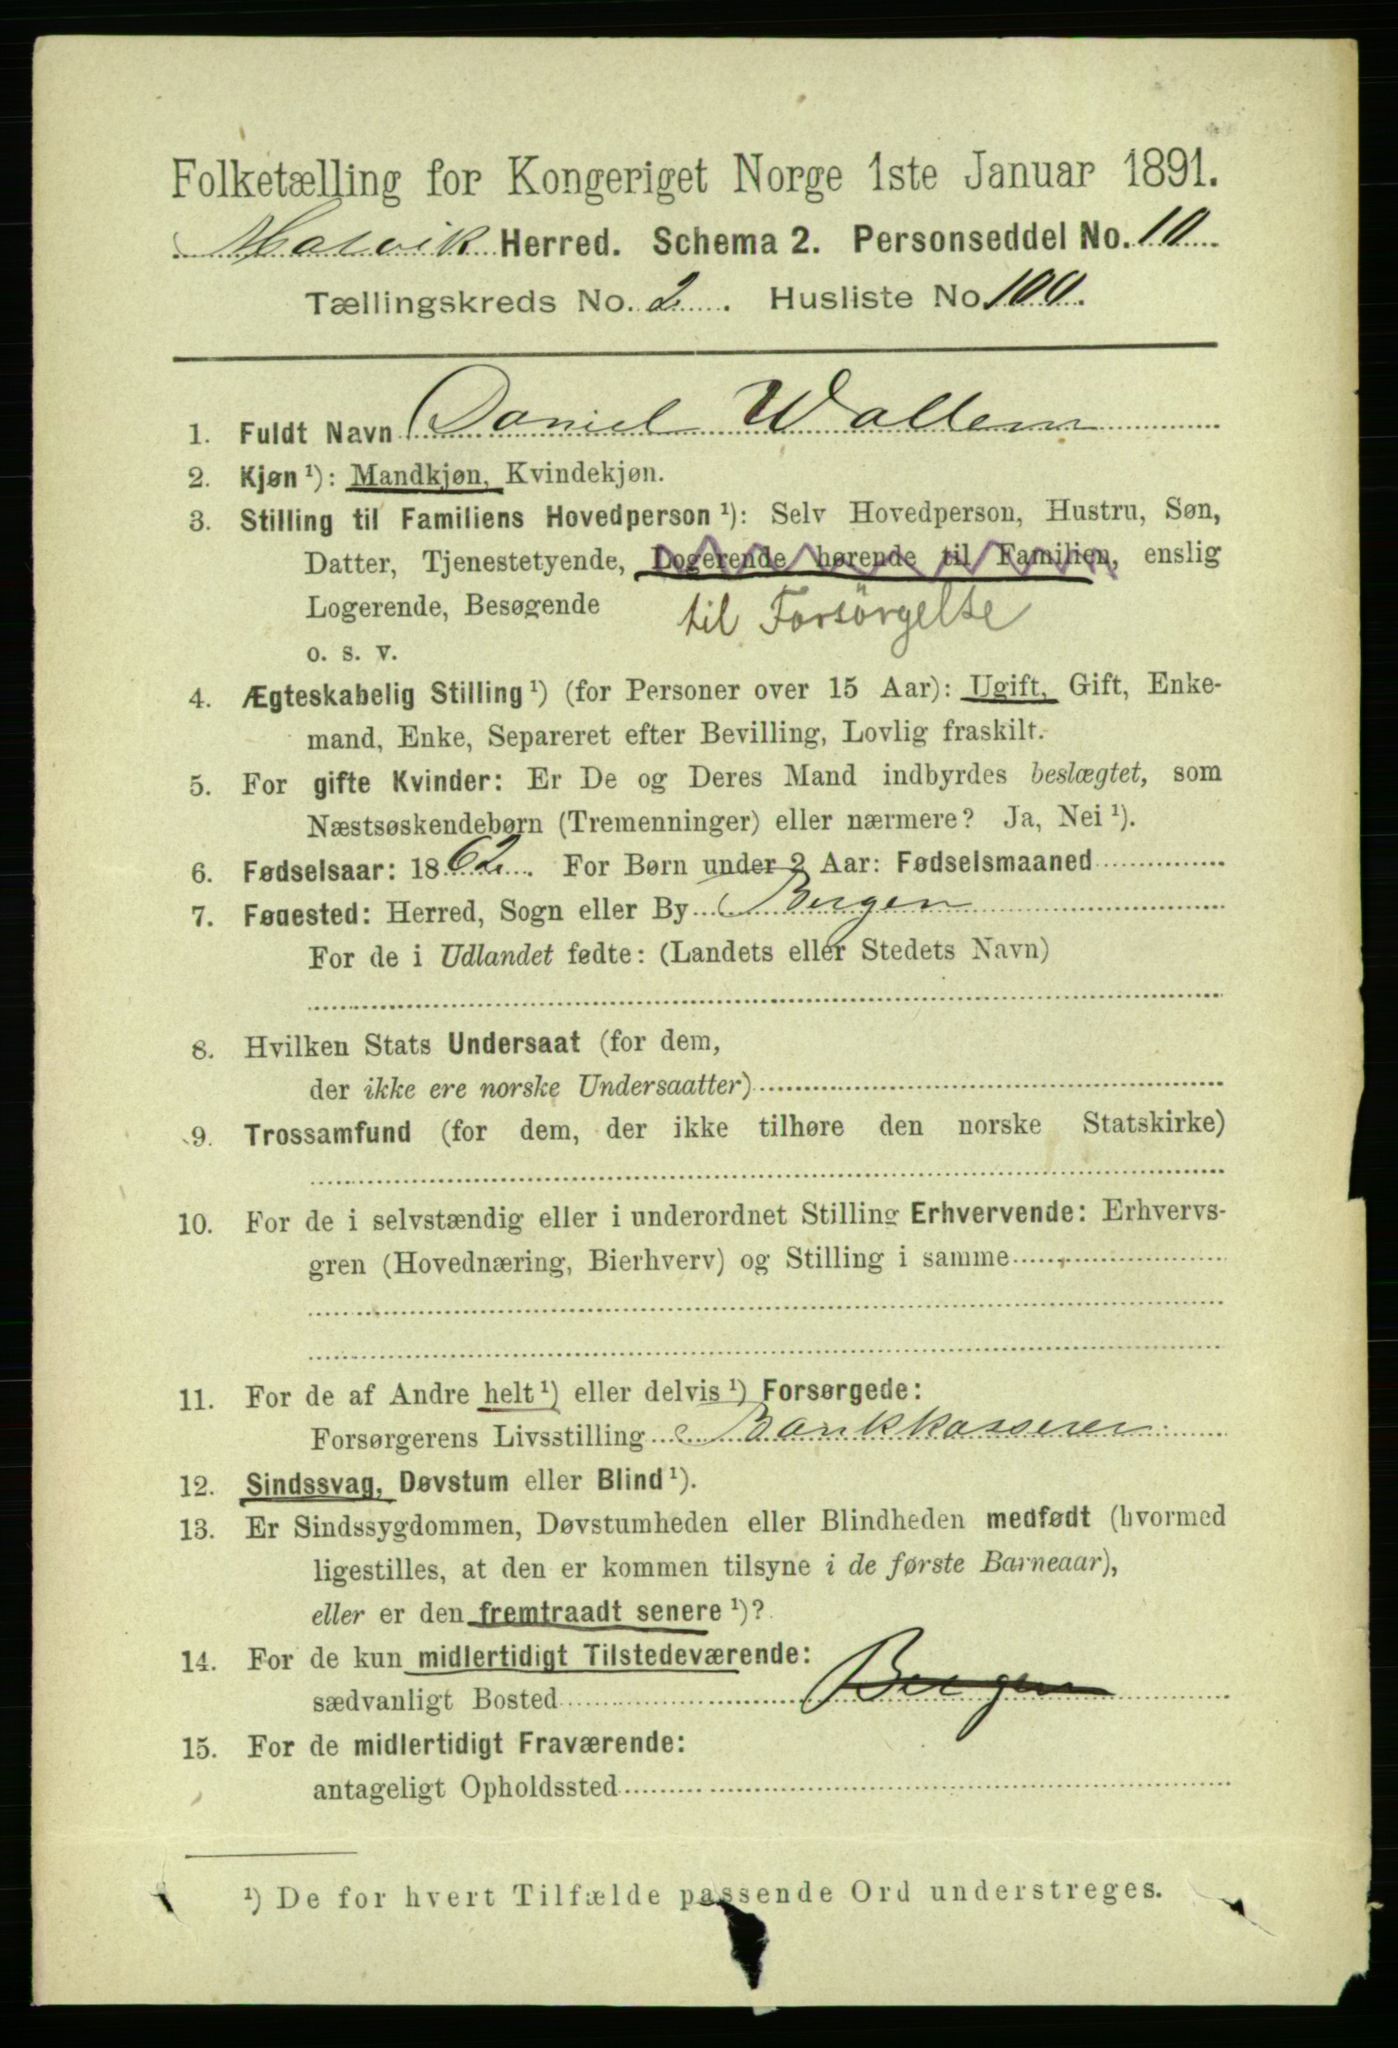 Folketælling for Kongeriget Norge 1ste Januar 1891.
Mosvik Herred. Schema 2. Personseddel No. 10.
Tællingskreds No. 2. Husliste No 100.
1. Fuldt Navn Daniel Wallem
2. Kjøn ¹): Mandkjøn, Kvindekjøn.
3. Stilling til Familiens Hovedperson ¹): Selv Hovedperson, Hustru, Søn,
Datter, Tjenestetyende, Logerende hørende til Familien, enslig
Logerende, Besøgende til Forsörgelse
o. s. v.
4. Ægteskabelig Stilling ¹) (for Personer over 15 Aar): Ugift, Gift, Enke-
mand, Enke, Separeret efter Bevilling, Lovlig fraskilt.
5. For gifte Kvinder: Er De og Deres Mand indbyrdes beslægtet, som
Næstsøskendebørn (Tremenninger) eller nærmere? Ja, Nei ¹).
6. Fødselsaar: 1862. For Børn under 2 Aar: Fødselsmaaned
7. Fødested: Herred, Sogn eller By Bergen
For de i Udlandet fødte: (Landets eller Stedets Navn)
8. Hvilken Stats Undersaat (for dem,
der ikke ere norske Undersaatter)
9. Trossamfund (for dem, der ikke tilhøre den norske Statskirke)
10. For de i selvstændig eller i underordnet Stilling Erhvervende: Erhvervs-
gren (Hovednæring, Bierhverv) og Stilling i samme
11. For de af Andre helt ¹) eller delvis ¹) Forsørgede:
Forsørgerens Livsstilling Bankkasserer
12. Sindssvag, Døvstum eller Blind ¹).
13. Er Sindssygdommen, Døvstumheden eller Blindheden medfødt (hvormed
ligestilles, at den er kommen tilsyne i de første Barneaar),
eller er den fremtraadt senere ¹)?
14. For de kun midlertidigt Tilstedeværende:
sædvanligt Bosted Bergen
15. For de midlertidigt Fraværende:
antageligt Opholdssted
¹) De for hvert Tilfælde passende Ord understreges.